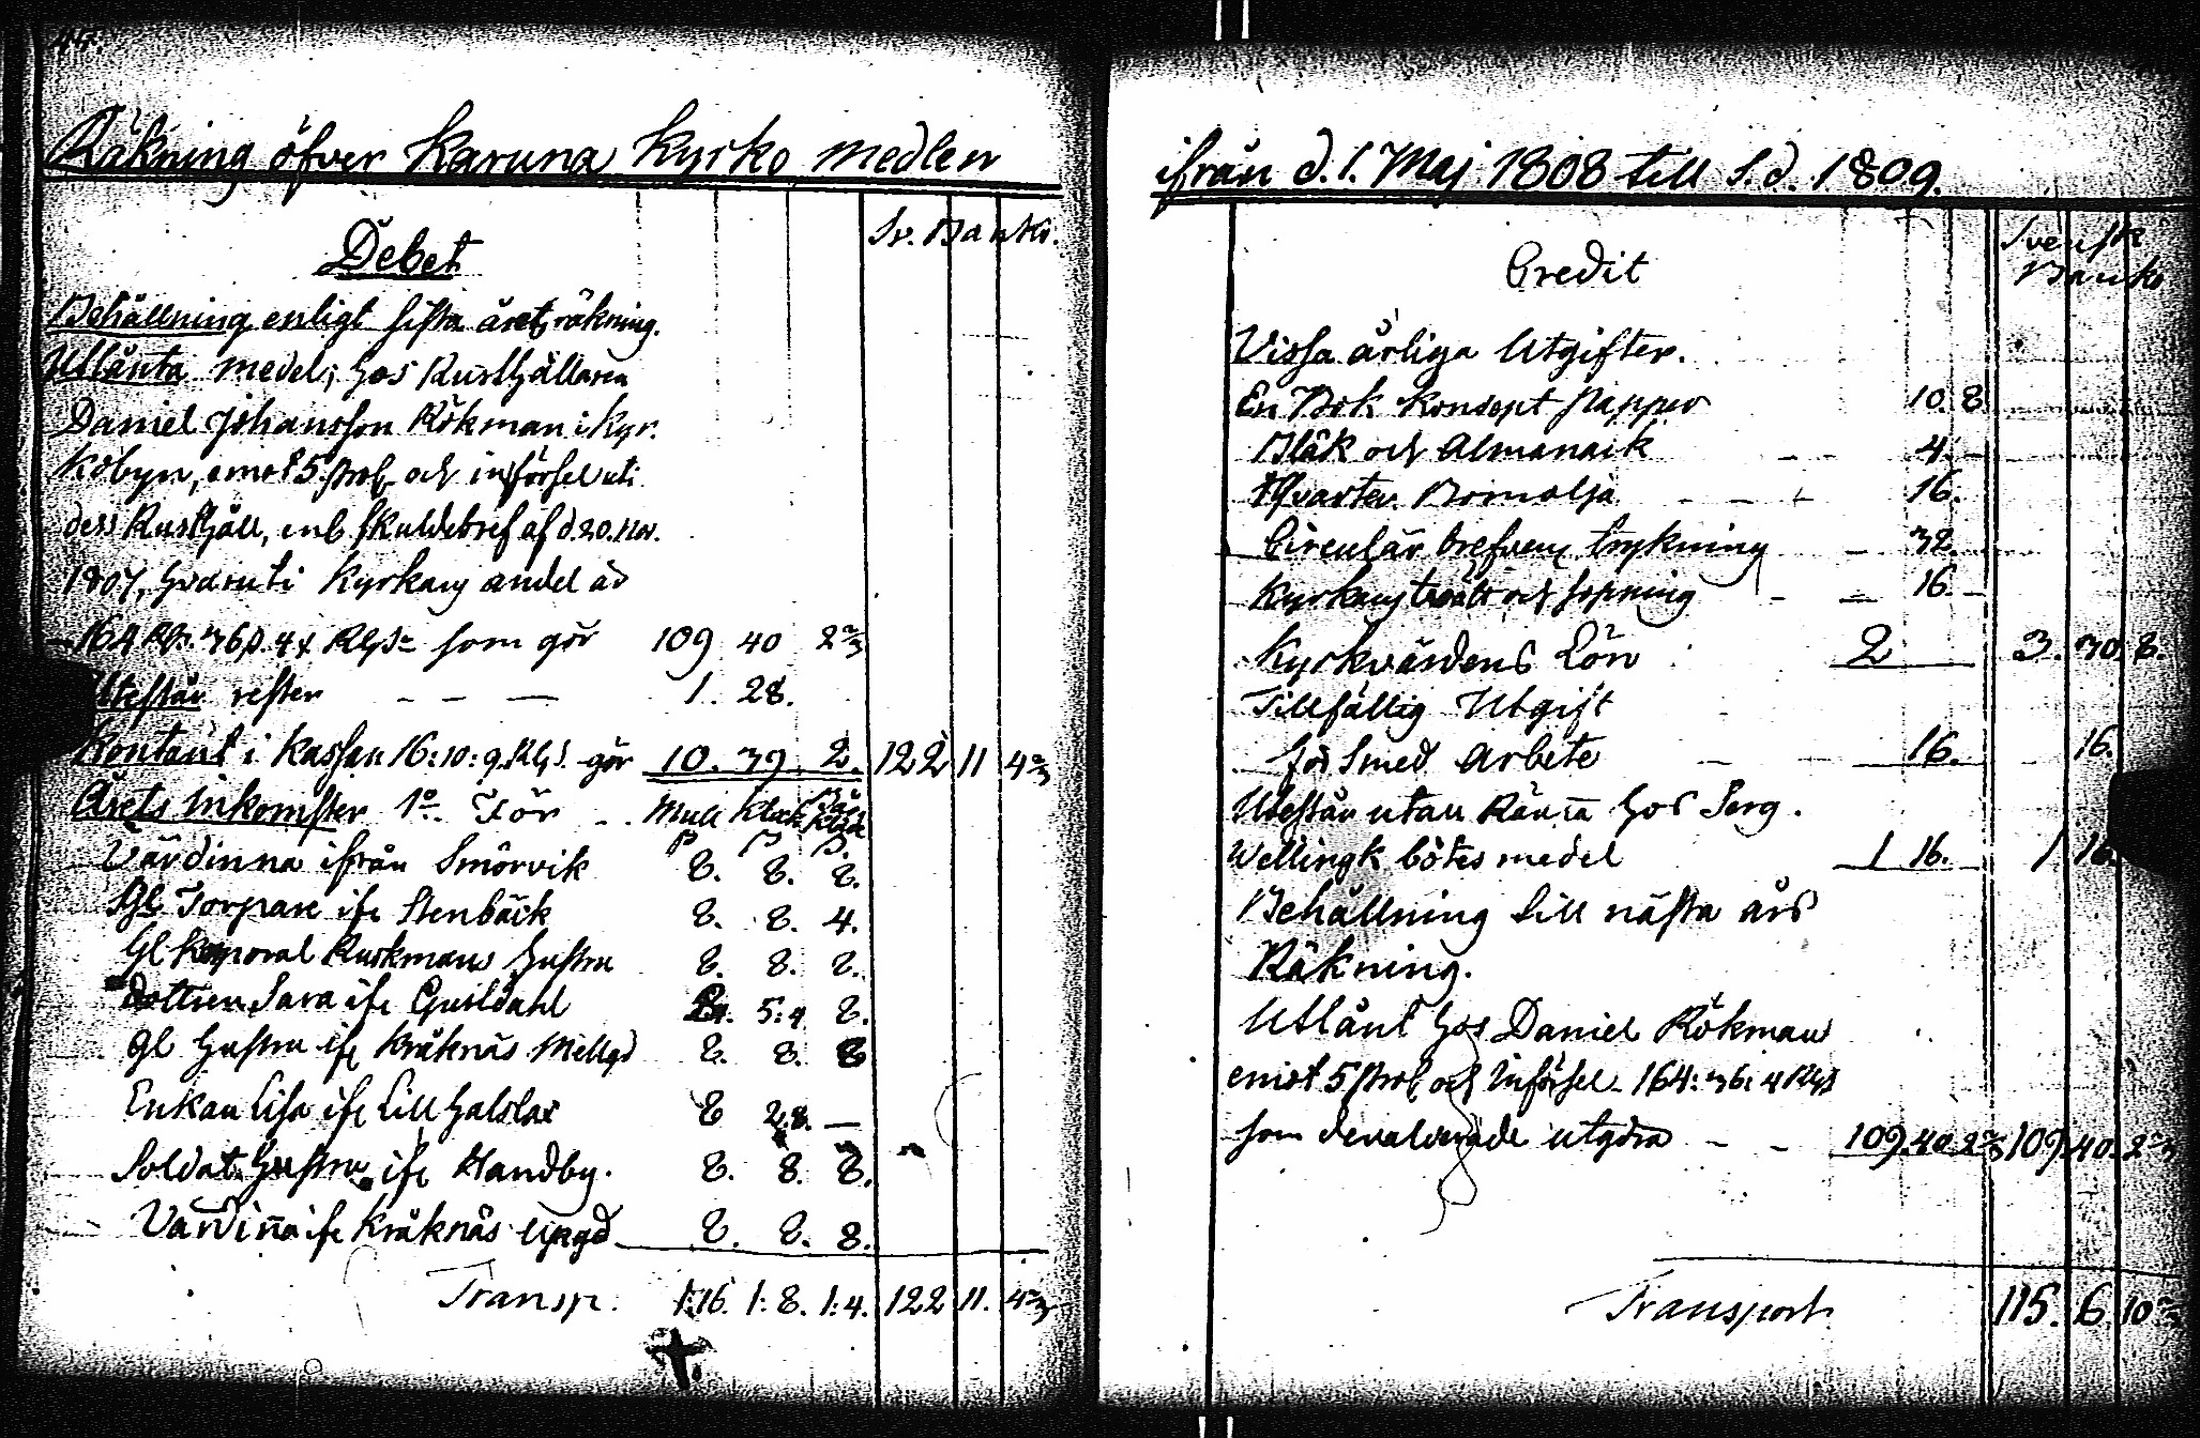 44.
Räkning öfver Karuna Kyrko medlen
Sv. Banko.
Debet
Behållning enligt sista årets räkning.
Utlänta medel; hos Rusthållaren
Daniel Johansson Rökman i Kyr-
kobyn, emot 5. proc. och införsel uti
dess Rusthåll, enl. skuldebref af d. 20. Nov.
1807, hvaruti Kyrkans andel är
164 Rdr. 36 s. 4 r. Rgs som gör 109 40 2 2/3
Utestår rester — — — 1. 28.
Kontant i Kassan 16:10:9. Rgs. gör 10. 39. 2. 122 11 4 2/3
Årets Inkomster 1o För Mull Klock Bår Kläde
Värdinna ifrån Smörvik 8. 8. 8.
Gl Torpare ifr Stenbäck 8. 8. 4.
Gl Korporal Ruskmans hustru 8. 8. 8.
dottren Sara ifr Gulldahl 5:4 8.
gl hustru ifr Kråknäs Mellgd 8. 8. 8
Enkan Lisa ifr Lill 8 2.8. —
Soldat. hustru ifr Handby. 8. 8. 8.
Värdinna ifr Kråknäs Upgd 8. 8. 8.
Transp. 1:16. 1:8. 1:4. 122 11. 4 2/3
ifrån d. 1. Maj 1808 till s. d. 1809.
Svensk
Banko
Credit
Vissa årliga Utgifter.
En Bok Konsept papper 10. 8
Bläk och Almanack — — 4. —
1 Qvarter Bomolja — — 16.
Circulär brefvens trykning — 32.
Kyrkans tvätt och sopning — — 16. —
Kyrkvärdens Lön 2 3. 30. 8.
Tillfällig Utgift
för Smed Arbete — — 16. 16.
Utestår utan Ränta hos Serg.
Wellingk bötes medel 1 16. 1 16.
Behållning till nästa års
Räkning.
Utlänt hos Daniel Rökman
emot 5 proc. och Införsel 164: 36: 4 Rgs
som devalverade utgöra — — 109. 40. 2 2/3 109. 40. 2 2/3
Transport 115. 6. 10 2/3